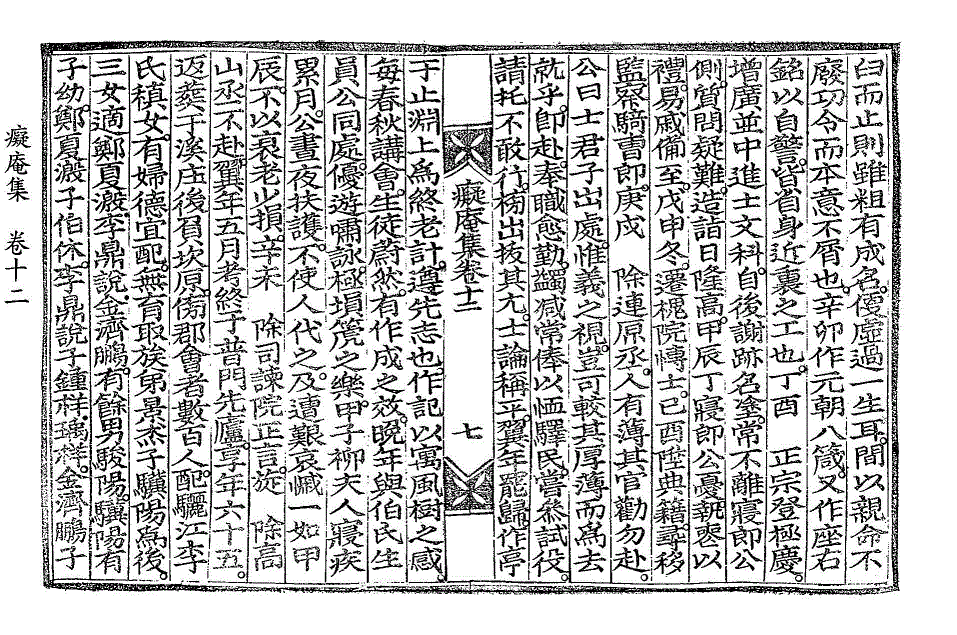 臼而止則雖粗有成名優虛過一生耳間以親命不
廢功令而本意不屑也辛卯作元朝八箴又作座右
銘以自警皆省身近裏之工也丁酉 正宗登極慶
增廣並中進士文科自後謝跡名塗常不離寢郞公
側質問疑難造詣日隆高甲辰丁寢郞公憂執喪以
禮易戚備至戊申冬遷槐院愽士己酉陞典籍尋移
監察騎曹郞庚戌 除連原丞人有薄其官勸勿赴
公曰士君子出處惟義之視豈可較其厚薄而爲去
就乎卽赴奉職愈勤蠲减常俸以恤驛民嘗叅試役
請托不敢行榜出拔其尤士論稱乎翼年罷歸作亭
癡庵集卷十二 七
于止淵上爲終老計遵先志也作記以寓風樹之感
每春秋講會生徒蔚然有作成之效晩年與伯氏生
員公同處優遊嘯詠極塤篪之樂甲子柳夫人寢疾
累月公晝夜扶護不使人代之及遭艱哀慽一如甲
辰不以衰老少損辛未 除司諫院正言旋 除高
山丞不赴翼年五月考終于普門先廬享年六十五
返葬于溪庄後負坎原傍郡會者數百人配驪江李
氏稹女有婦德宜配無育取族弟景杰子驥陽爲後
三女適鄭夏瀔李鼎說金濟鵬有餘男駿陽驥陽有
子幼鄭夏瀔子伯休李鼎說子鍾祥瑀祥金濟鵬子
癡庵集 卷十二